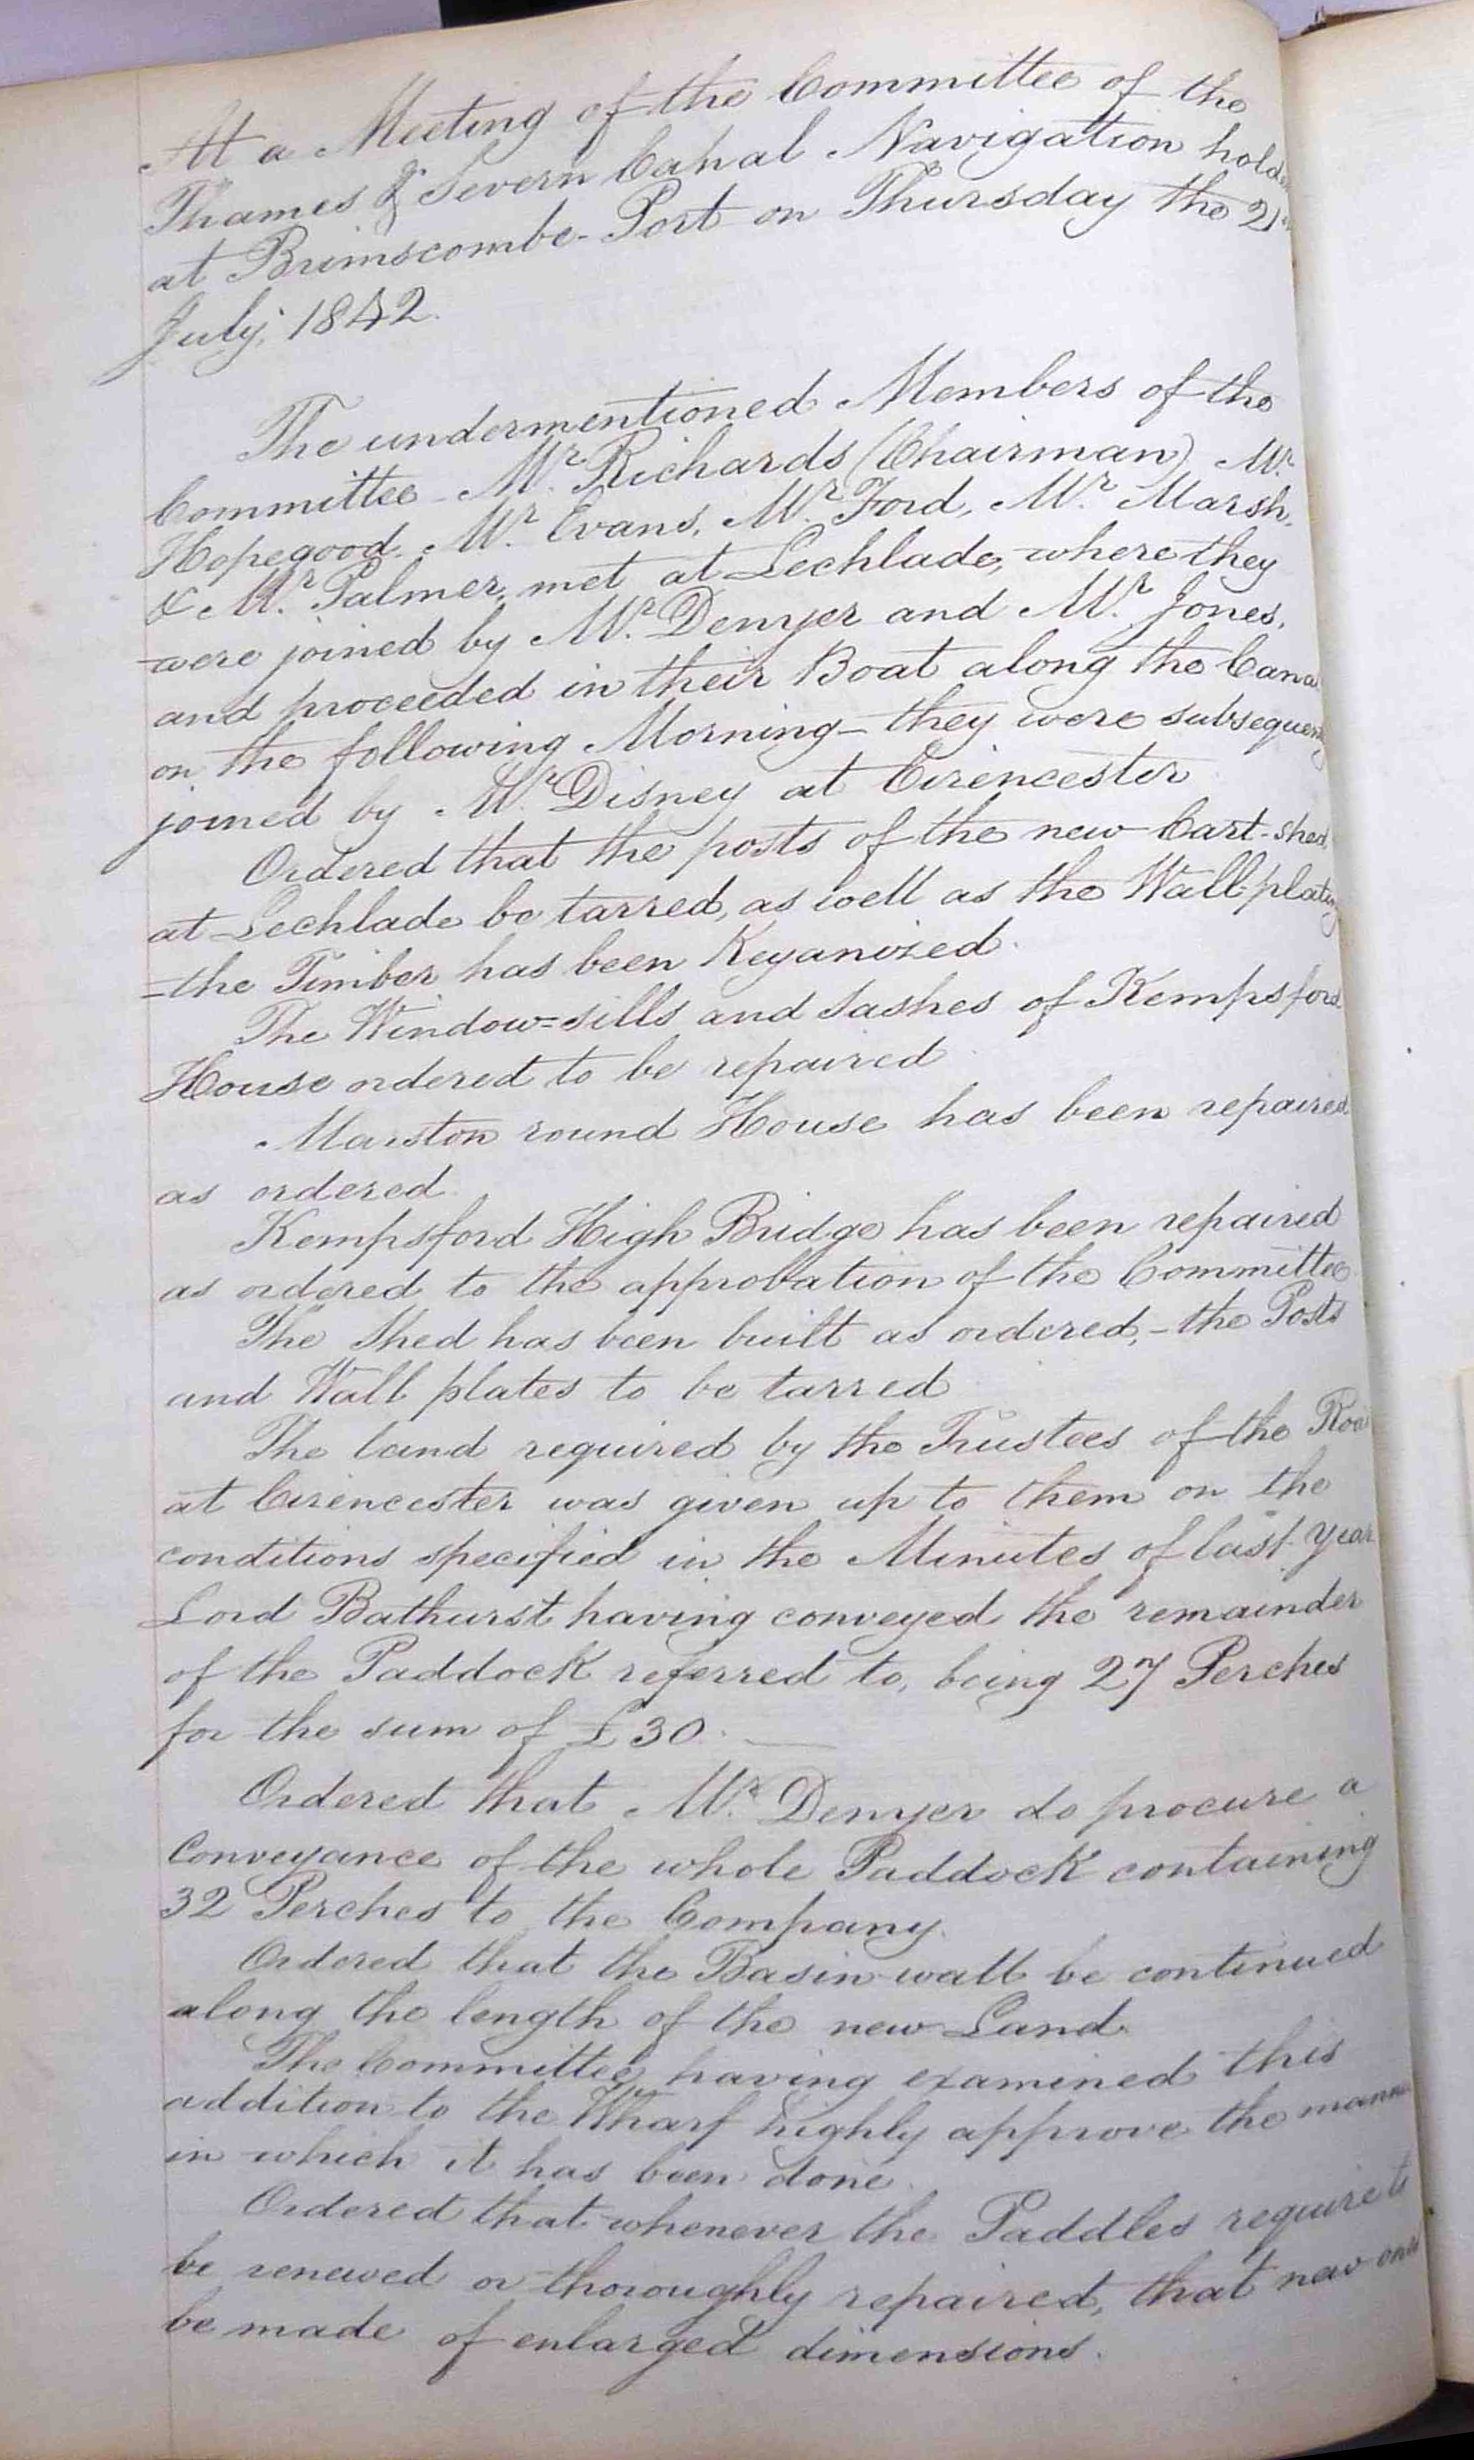 At a Meeting of the Committee of the
Thames & Severn Canal Navigation hold
at Brimscombe-Port on Thursday the 21st
July, 1842.
The undermentioned Members of the
Committee - Mr. Richards (Chairman) Mr.
Hopegood. Mr. Evans, Mr. Ford, Mr. Marsh,
& Mr. Palmer, met at Lechlade, where they
were joined by Mr. Denyer and Mr. Jones,
and proceeded in their Boat along the Cana
on the following Morning - they were subsequen
joined by Mr. Disney at Cirencester
Ordered that the posts of the new Cart-shed
at Lechlade be tarred, as well as the Wall-plates
- the Timber has been Keyanized.
The Window=sills and Sashes of Kempsford
House ordered to be repaired
Marston round House has been repaired
as ordered.
Kempsford High Bridge has been repaired
as ordered to the approbation of the Committee
The Shed has been built as ordered, - the Posts
and Wall plates to be tarred
The land required by the Trustees of the Roa
at Cirencester was given up to them on the
conditions specified in the Minutes of last year
Lord Bathurst having conveyed the remainder
of the Paddock referred to, being 27 Perches
for the sum of £30. —
Ordered that Mr. Denyer do procure a
Conveyance of the whole Paddock containing
32 Perches to the Company.
Ordered that the Basin wall be continued
along the length of the new Land.
The Committee having examined this
addition to the Wharf highly approve the mann
in which it has been done.
Ordered that whenever the Paddles require to
be renewed or thoroughly repaired, that new ones
be made of enlarged dimensions.